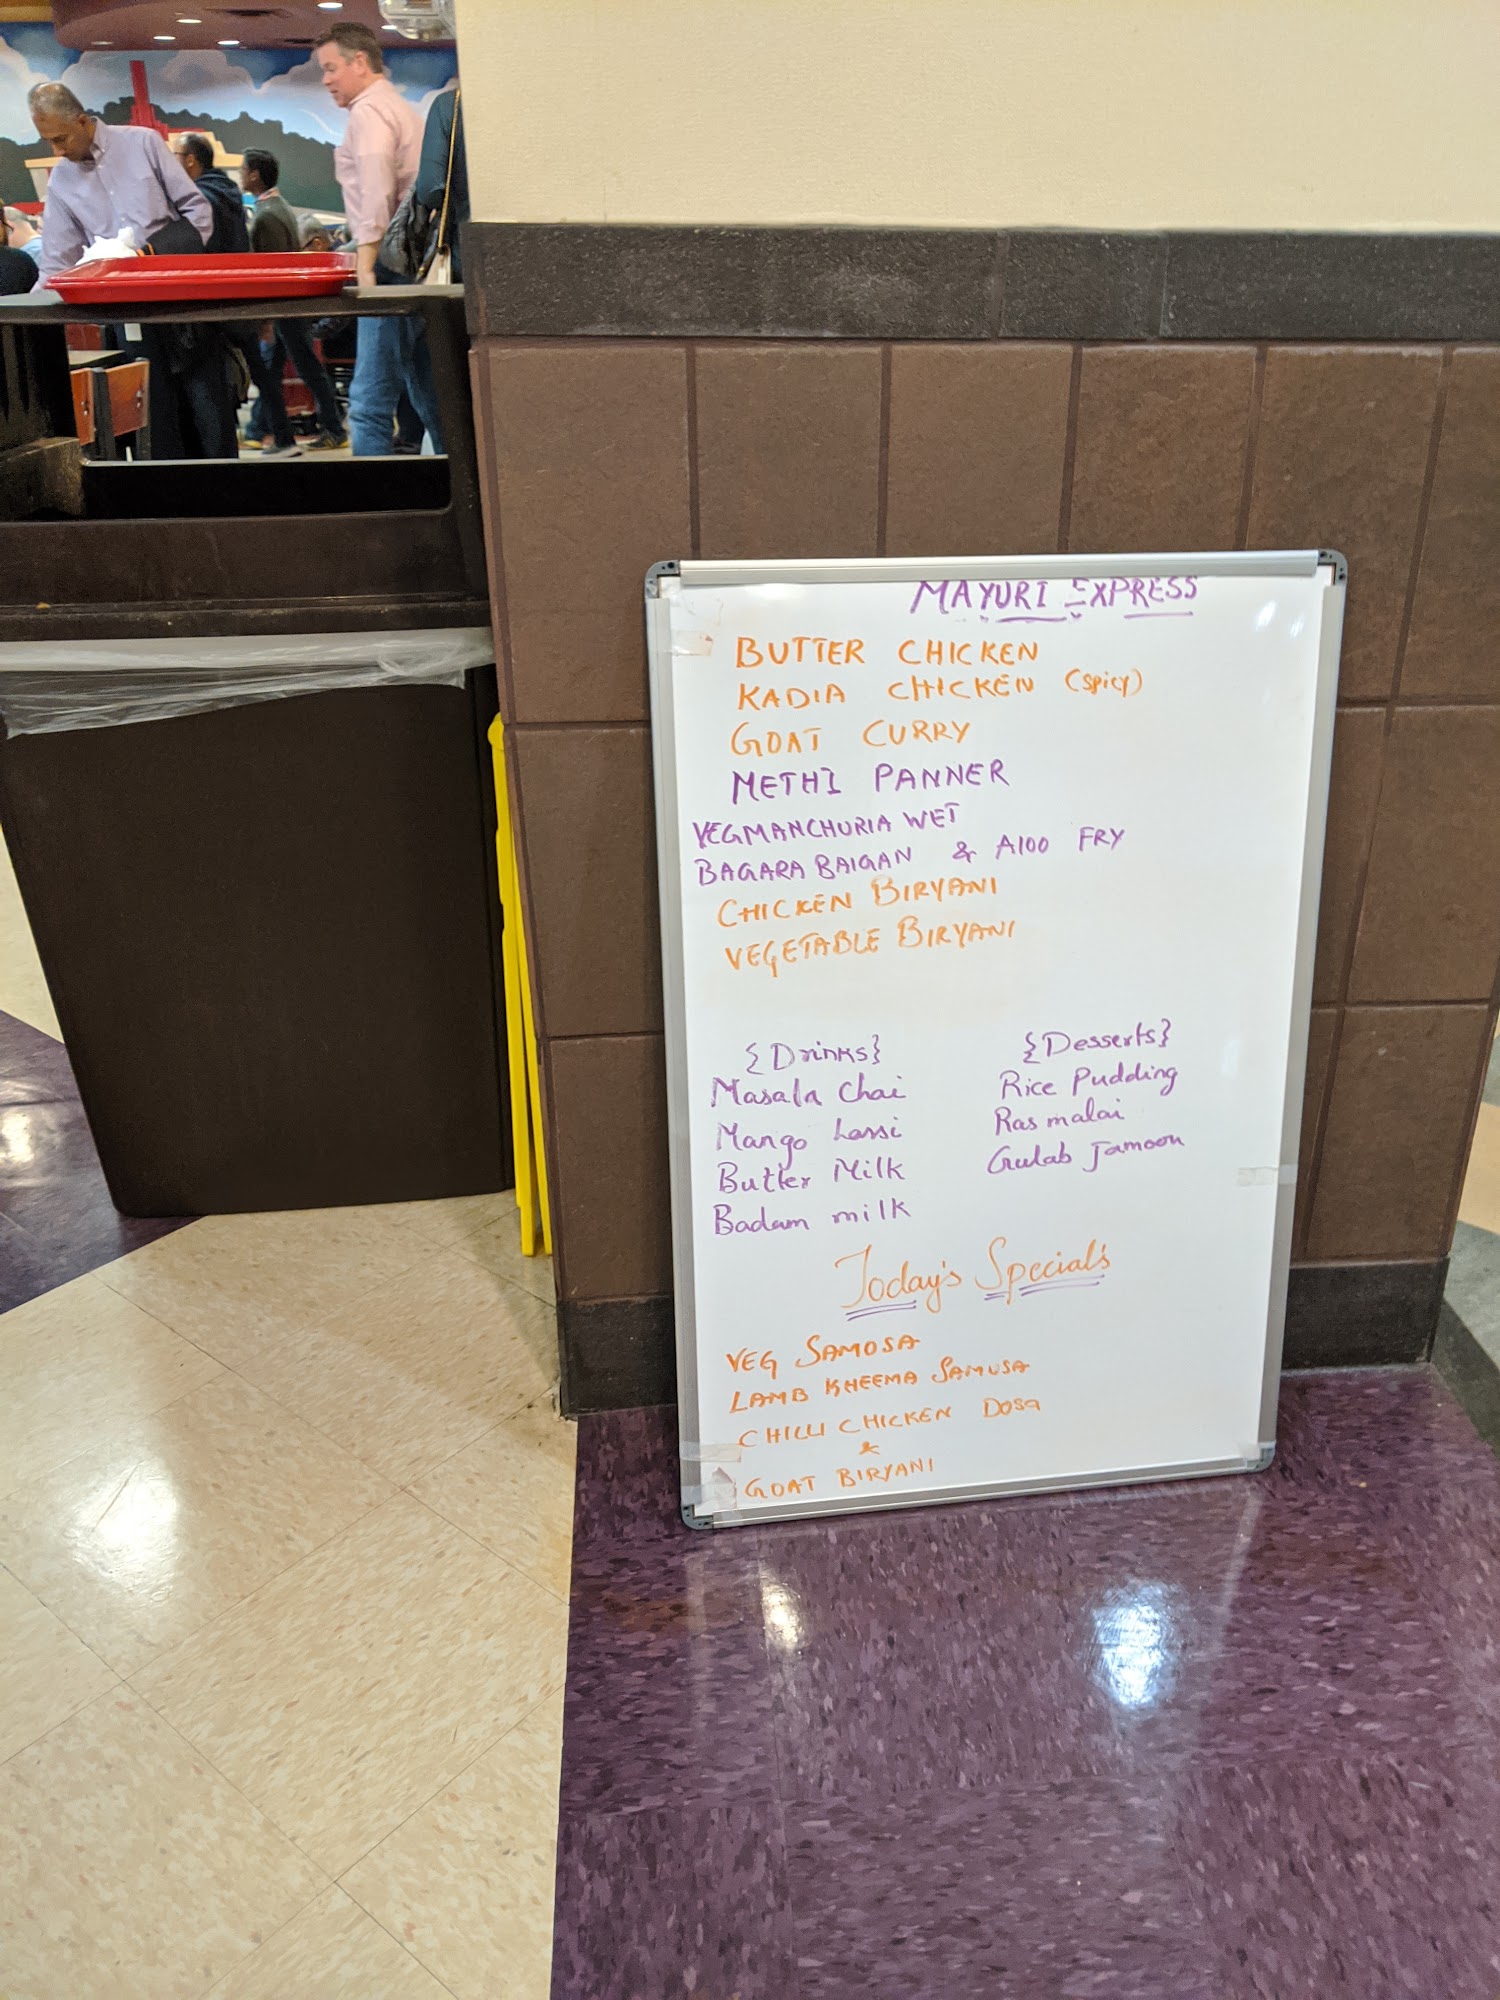 MAYURI EXPRESS
BUTTER CHICKEN
KADIA CHICKEN (Spicy)
GOAT CURRY
METHI PANNER
VEGMANCHURIA WET
BAGARA BAIGAN & Aloo FRY
CHICKEN BIRYANI
VEGETABLE BIRYANI
{Drinks}
Masala Chai
Mango Lassi
Butter Milk
Badam milk
{Desserts}
Rice Pudding
Ras malai
Gulab Jamoon
Today's Special's
VEG SAMOSA
LAMB KHEEMA SAMUSA
CHILLI CHICKEN DOSA
&
GOAT BIRYANI